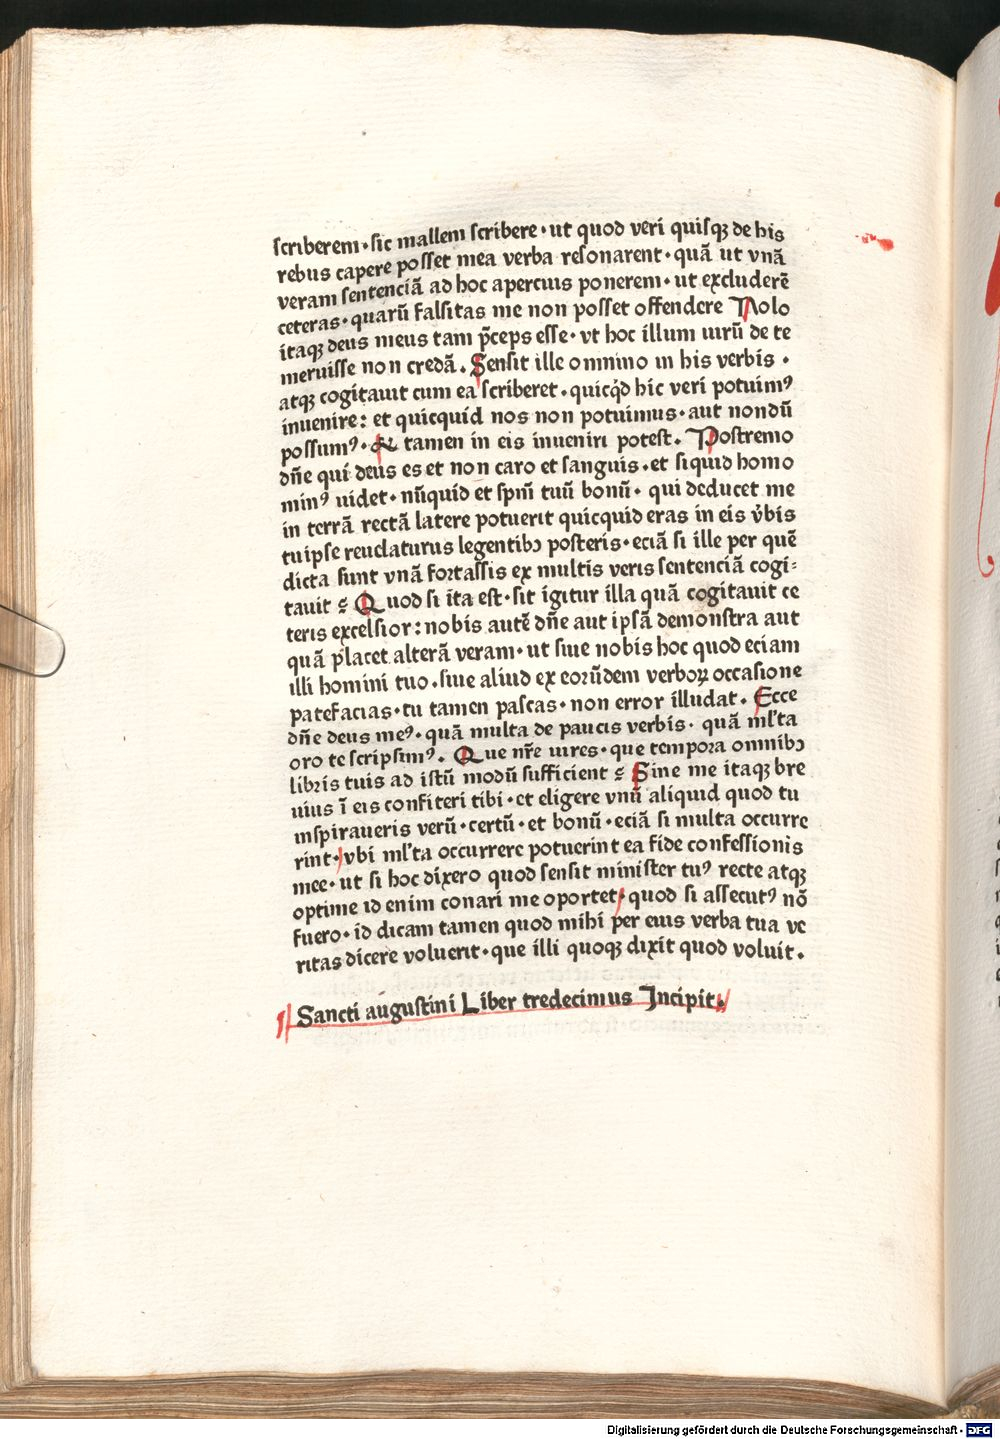 scriberem · sic mallem scribere · ut quod veri quisqꝫ de his
rebus capere posset mea verba resonarent · quā ut vnā
veram sentenciā ad hoc apercius ponerem · ut excluderē
ceteras · quarū falsitas me non posset offendere Nolo
itaqꝫ deus meus tam p̄ceps esse · vt hoc illum uirū de te
meruisse non credā . Sensit ille omnino in his verbis .
atqꝫ cogitauit cum ea scriberet . quicq̇d hic veri potuimꝰ
inuenire : et quicquid nos non potuimus · aut nondū
possumꝰ . Et tamen in eis inueniri potest . Postremo
dn̄e qui deus es et non caro et sanguis . et siquid homo
minꝰ uidet · nūquid et spm̄ tuū bonū · qui deducet me
in terrā rectā latere potuerit quicquid eras in eis v̾bis
tu ipse reuelaturus legentibꝫ posteris · eciā si ille per quē
dicta sunt vnā fortassis ex multis veris sentenciā cogi⸗
tauit ? Quod si ita est . sit igitur illa quā cogitauit ce
teris excelsior : nobis autē dn̄e aut ipsā demonstra aut
quā placet alterā veram . ut siue nobis hoc quod eciam
illi homini tuo . siue aliud ex eorūdem verboꝝ occasione
patefacias . tu tamen pascas . non error illudat . Ecce
dn̄e deus meꝰ . quā multa de paucis verbis . quā ml̓ta
oro te scripsimꝰ . Que nr̄e uires . que tempora omnibꝫ
libris tuis ad istū modū sufficient ? Sine me itaqꝫ bre
uius ī eis confiteri tibi . et eligere vnū aliquid quod tu
inspiraueris verū . certū . et bonū . eciā si multa occurre
rint . vbi ml̓ta occurrere potuerint ea fide confessionis
mee . ut si hoc dixero quod sensit minister tuꝰ recte atqꝫ
optime id enim conari me oportet . quod si assecutꝰ nō
fuero . id dicam tamen quod mihi per eius verba tua ve
ritas dicere voluerit . que illi quoqꝫ dixit quod voluit .
Sancti augustini Liber tredecimus Incipit .
Digitalisierung gefördert durch die Deutsche Forschungsgemeinschaft - DFG